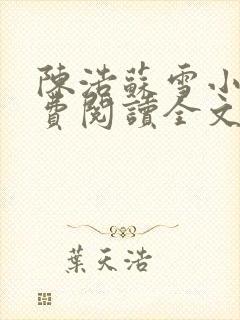 陳浩蘇雪小
費閱讀全文
葉天浩